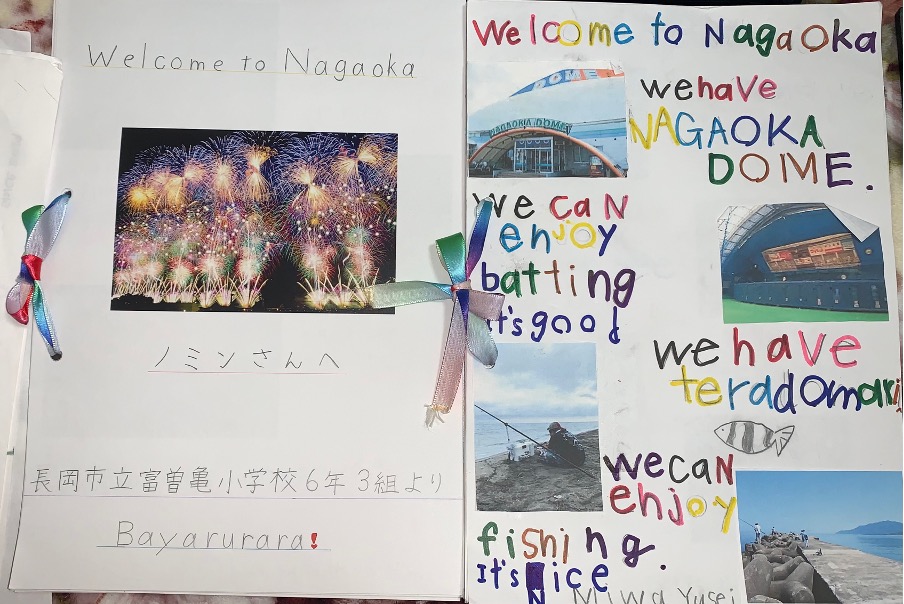 Welcome to Nagaoka
ノミンさんへ
長岡市立富曽亀小学校6年3組より
Bayarurara!
Welcome to Nagaoka
DOME
NAGAOKA DOME
we have
NAGAOKA
DOME.
we can
enjoy
batting
it's good
we have
teradomari
we can
enjoy
fishing.
It's Nice
Miwa Yusei